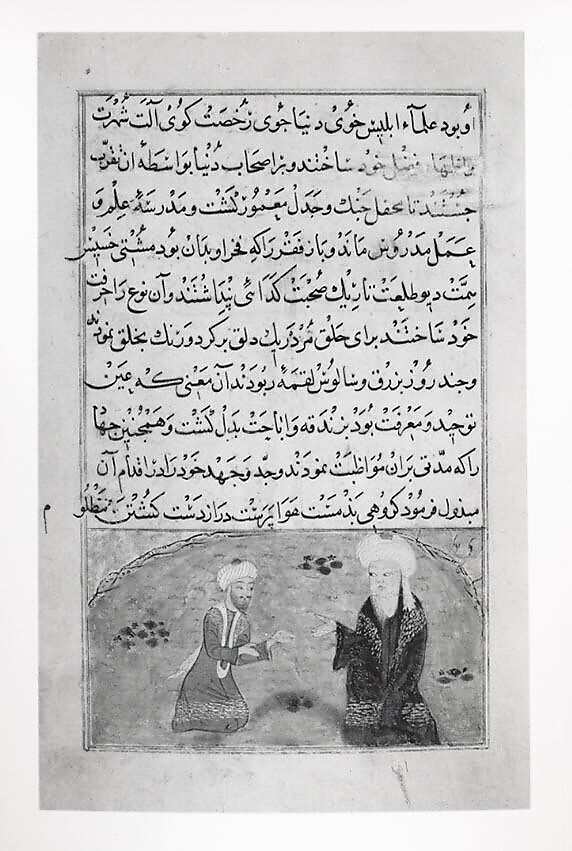 او بود علماء ابلیس خوی دنیا جوی رخصت کوی آلت شهرت
خود ساختند و بر اصحاب دنیا بواسطهٔ ان تقرب
جستند تا محفل جنك و جدل معمور کشت و مدرسهٔ علم و
عمل مدروس ماند و باز فقر را که فخر او بدان بود مشتی خسیس
همت دیو طلعت تاریك صحبت کدائی پنداشتند و آن نوع را حرفت
خود ساختند برای حلق مردریك دلق بر کردو رنك بخلق نمودند
و چند روز بزرق و سالوس لقمهٔ ربودند آن معنی که عین
توحید و معرفت بود بزندقه و اباحت بدل کشت و همچنین جهاد
را که مدتی بران مواظبت نمودند و جد و جهد خود را در اقدام آن
مبذول فرمود کروهی بدمست هوا پرست دراز دست کشتن